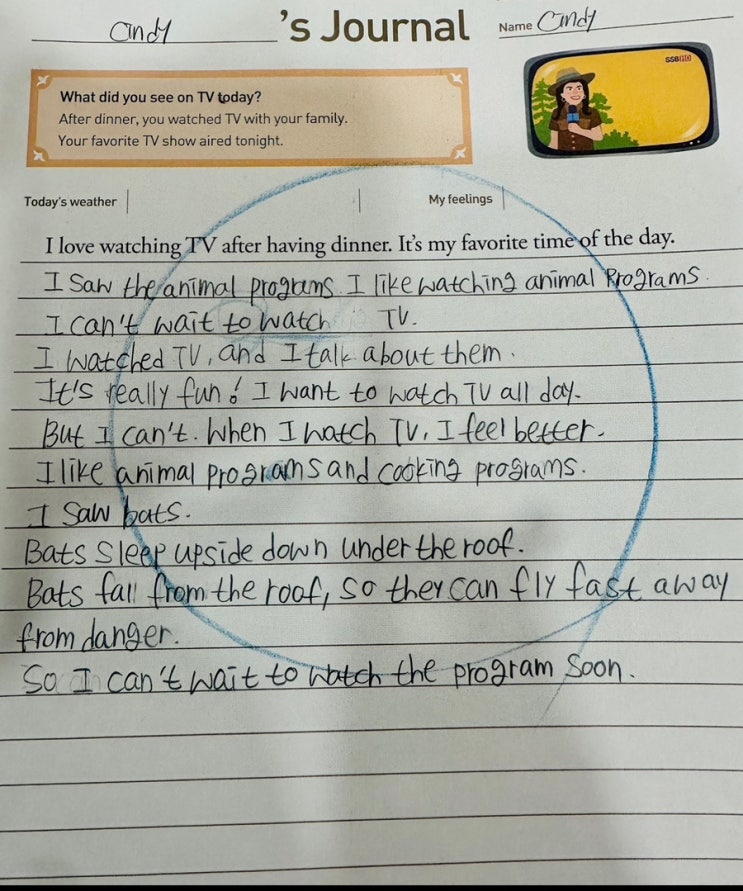 Cindy 's Journal Name Cindy
SSB HD
What did you see on TV today?
After dinner, you watched TV with your family.
Your favorite TV show aired tonight.
Today's weather My feelings
I love watching TV after having dinner. It's my favorite time of the day.
I Saw the animal programs. I like watching animal Programs.
I can't wait to watch TV.
I watched TV, and I talk about them.
It's really fun! I want to watch TV all day.
But I can't. When I watch TV, I feel better.
I like animal programs and cooking programs.
I Saw bats.
Bats sleep upside down under the roof.
Bats fall from the roof, so they can fly fast away
from danger.
So I can't wait to watch the program soon.